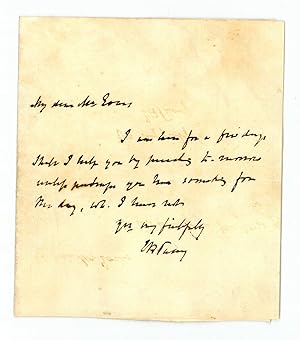 My dear Mr Evans,
I am here for a few days
Shall I help you by preaching to-morrow
unless perhaps you have somebody for
the day, wh. I have not
yrs very faithfully
E B Pusey